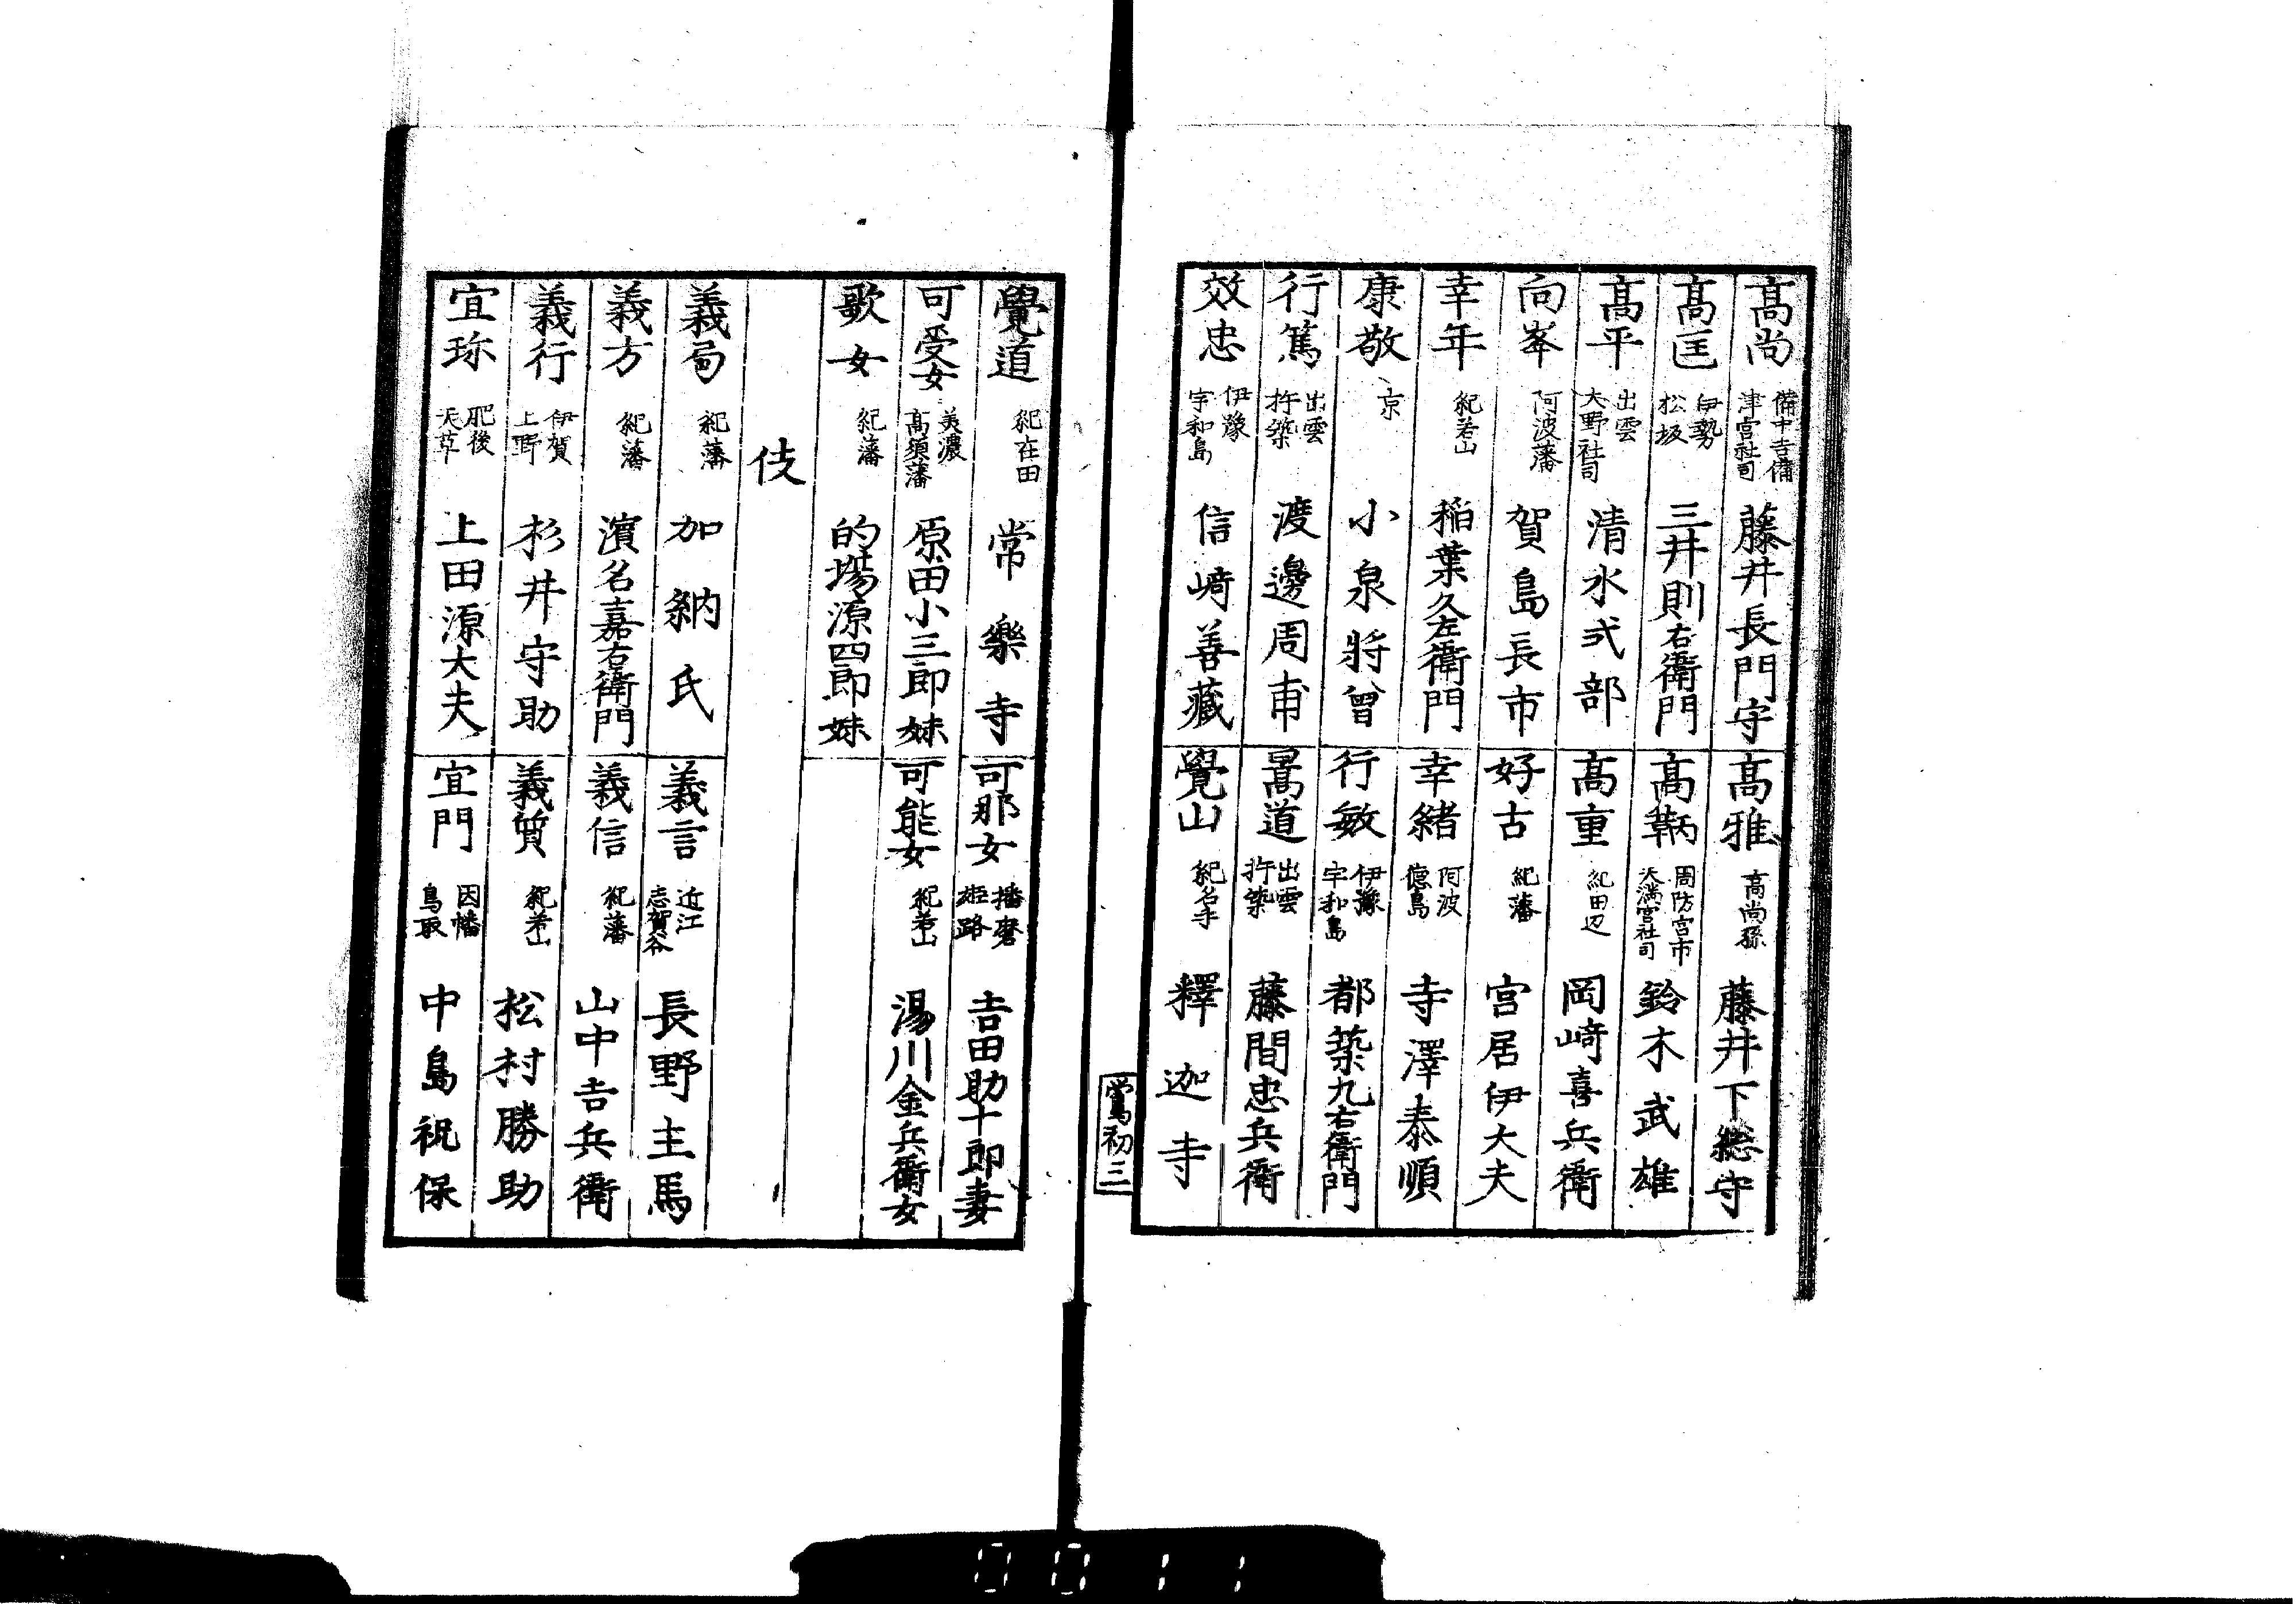 高尚 備中吉備津宮社司 藤井長門守
高雅 高尚孫 藤井下総守
高匡 伊勢松坂 三井則右衛門
高鞆 周防宮市天満宮社司 鈴木武雄
高平 出雲大野社司 清水式部
高重 紀田辺 岡﨑喜兵衛
向峯 阿波藩 賀島長市
好古 紀藩 宮居伊大夫
幸年 紀若山 稲葉久左衛門
幸緒 阿波徳島 寺澤泰順
康敬 京 小泉将曽
行敏 伊豫宇和島 都築九右衛門
行篤 出雲杵築 渡邊周甫
暠道 出雲杵築 藤間忠兵衛
效忠 伊豫宇和島 信﨑善藏
覺山 紀名手 釋迦寺
鴬初 三
覺道 紀在田 常樂寺
可那女 播磨姫路 吉田助十郎妻
可愛女 美濃高須藩 原田小三郎妹
可能女 紀若山 湯川金兵衛女
歌女 紀藩 的場源四郎妹
伎
義局 紀藩 加納氏
義言 近江志賀谷 長野主馬
義方 紀藩 濱名嘉右衛門
義信 紀藩 山中吉兵衛
義行 伊賀上野 杉井守助
義質 紀若山 松村勝助
宜珎 肥後天草 上田源大夫
宜門 因幡鳥取 中島祝保
0011